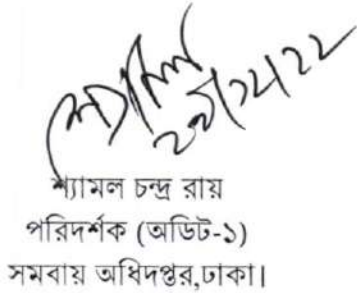 শ্যামল চন্দ্র রায়
পরিদর্শক (অডিট-১)
সমবায় অধিদপ্তর,ঢাকা।